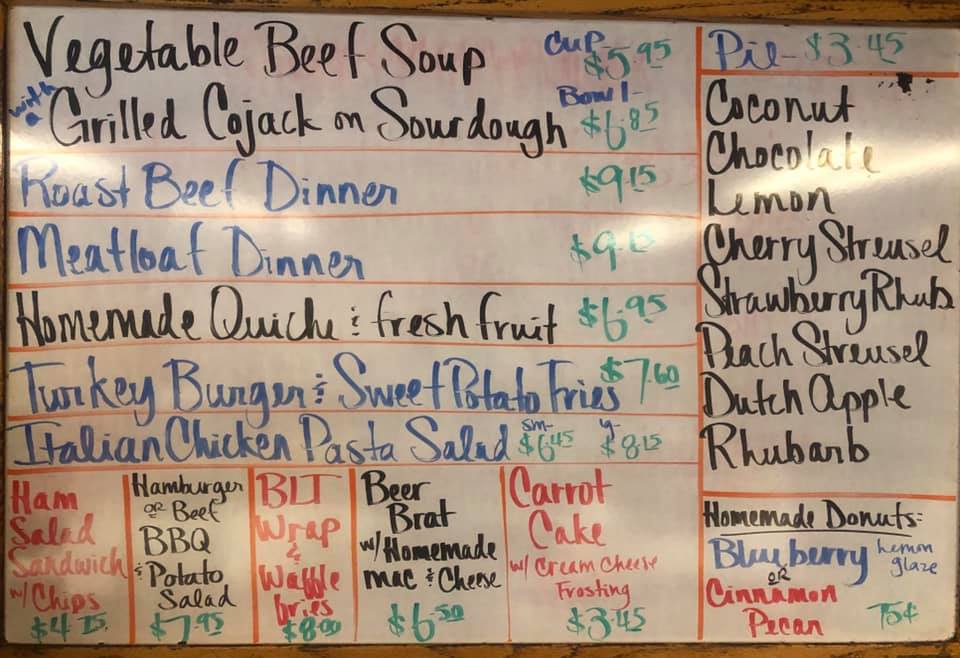 Vegetable Beef Soup Cup $5.95
with a Grilled Cojack on Sourdough Bowl- $6.85
Roast Beef Dinner $9.15
Meatloaf Dinner $9.15
Homemade Quiche & fresh fruit $6.95
Turkey Burger & Sweet Potato Fries $7.60
Italian Chicken Pasta Salad sm- $6.45 $8.15
Ham
Salad
Sandwich
w/ Chips
$4.75
Hamburger
or Beef
BBQ
& Potato
Salad
$7.95
BLT
Wrap
&
Waffle
fries
$8.00
Beer
Brat
w/ Homemade
mac & Cheese
$6.50
Carrot
Cake
w/ Cream Cheese
Frosting
$3.45
Pie- $3.45
Coconut
Chocolate
Lemon
Cherry Streusel
Strawberry Rhub
Peach Streusel
Dutch Apple
Rhubarb
Homemade Donuts:
Blueberry Lemon glaze
or
Cinnamon
Pecan 75¢